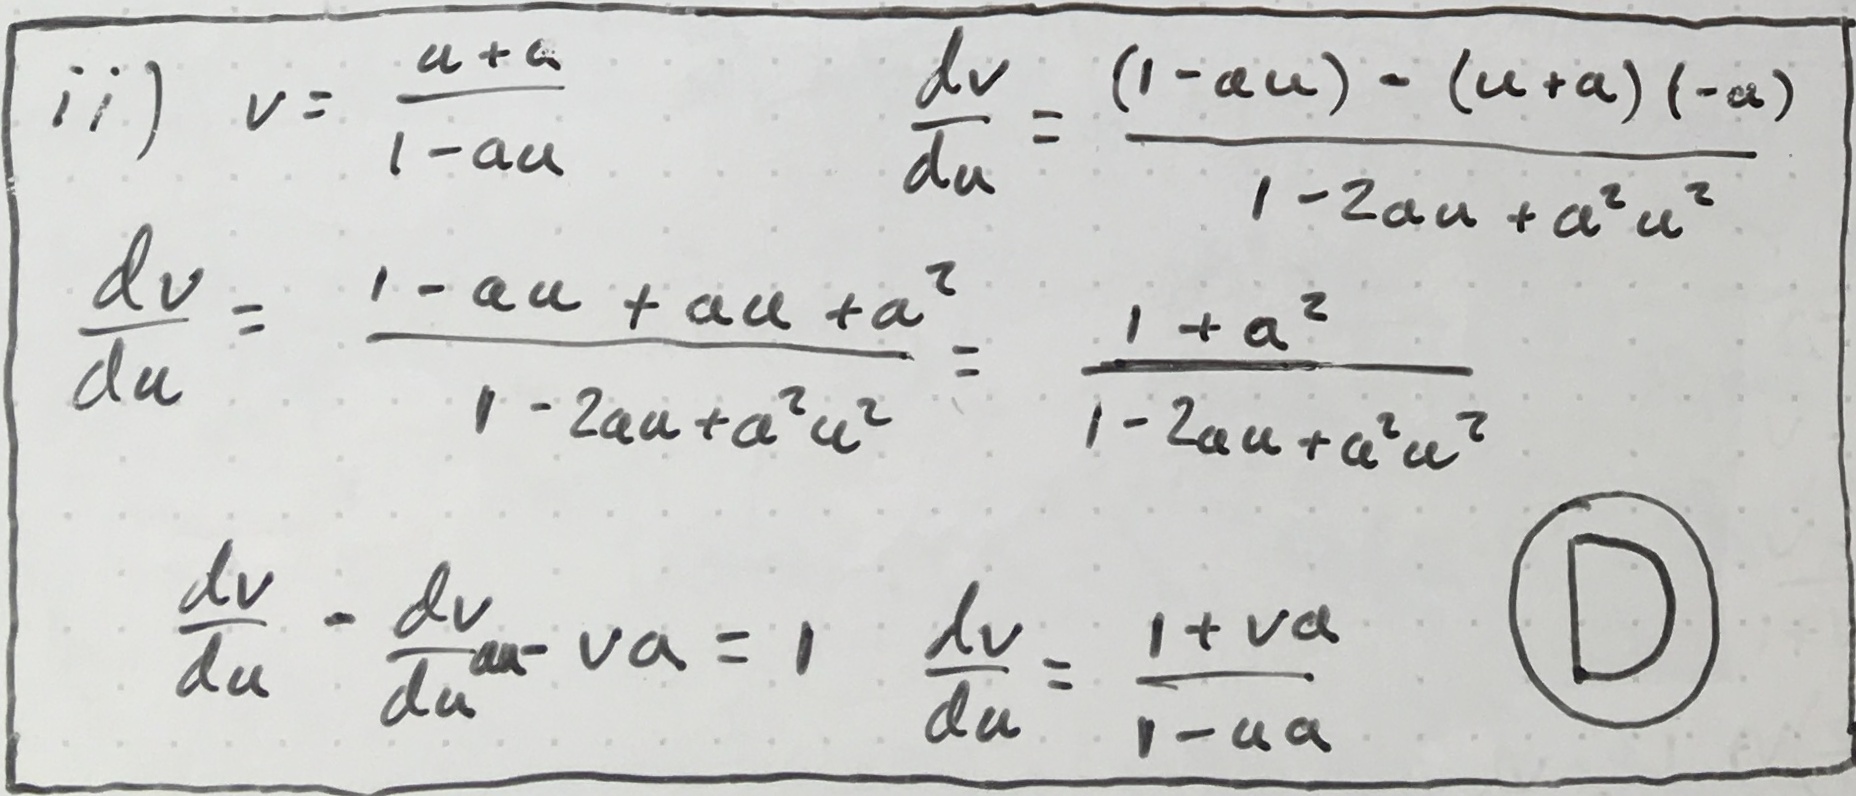 ii) v = (u+a)/(1-au) dv/du = ((1-au) - (u+a)(-a))/(1-2au+a²u²)
dv/du = (1-au+au+a²)/(1-2au+a²u²) = (1+a²)/(1-2au+a²u²)
dv/du - dv/du au - va = 1 dv/du = (1+va)/(1-ua) D